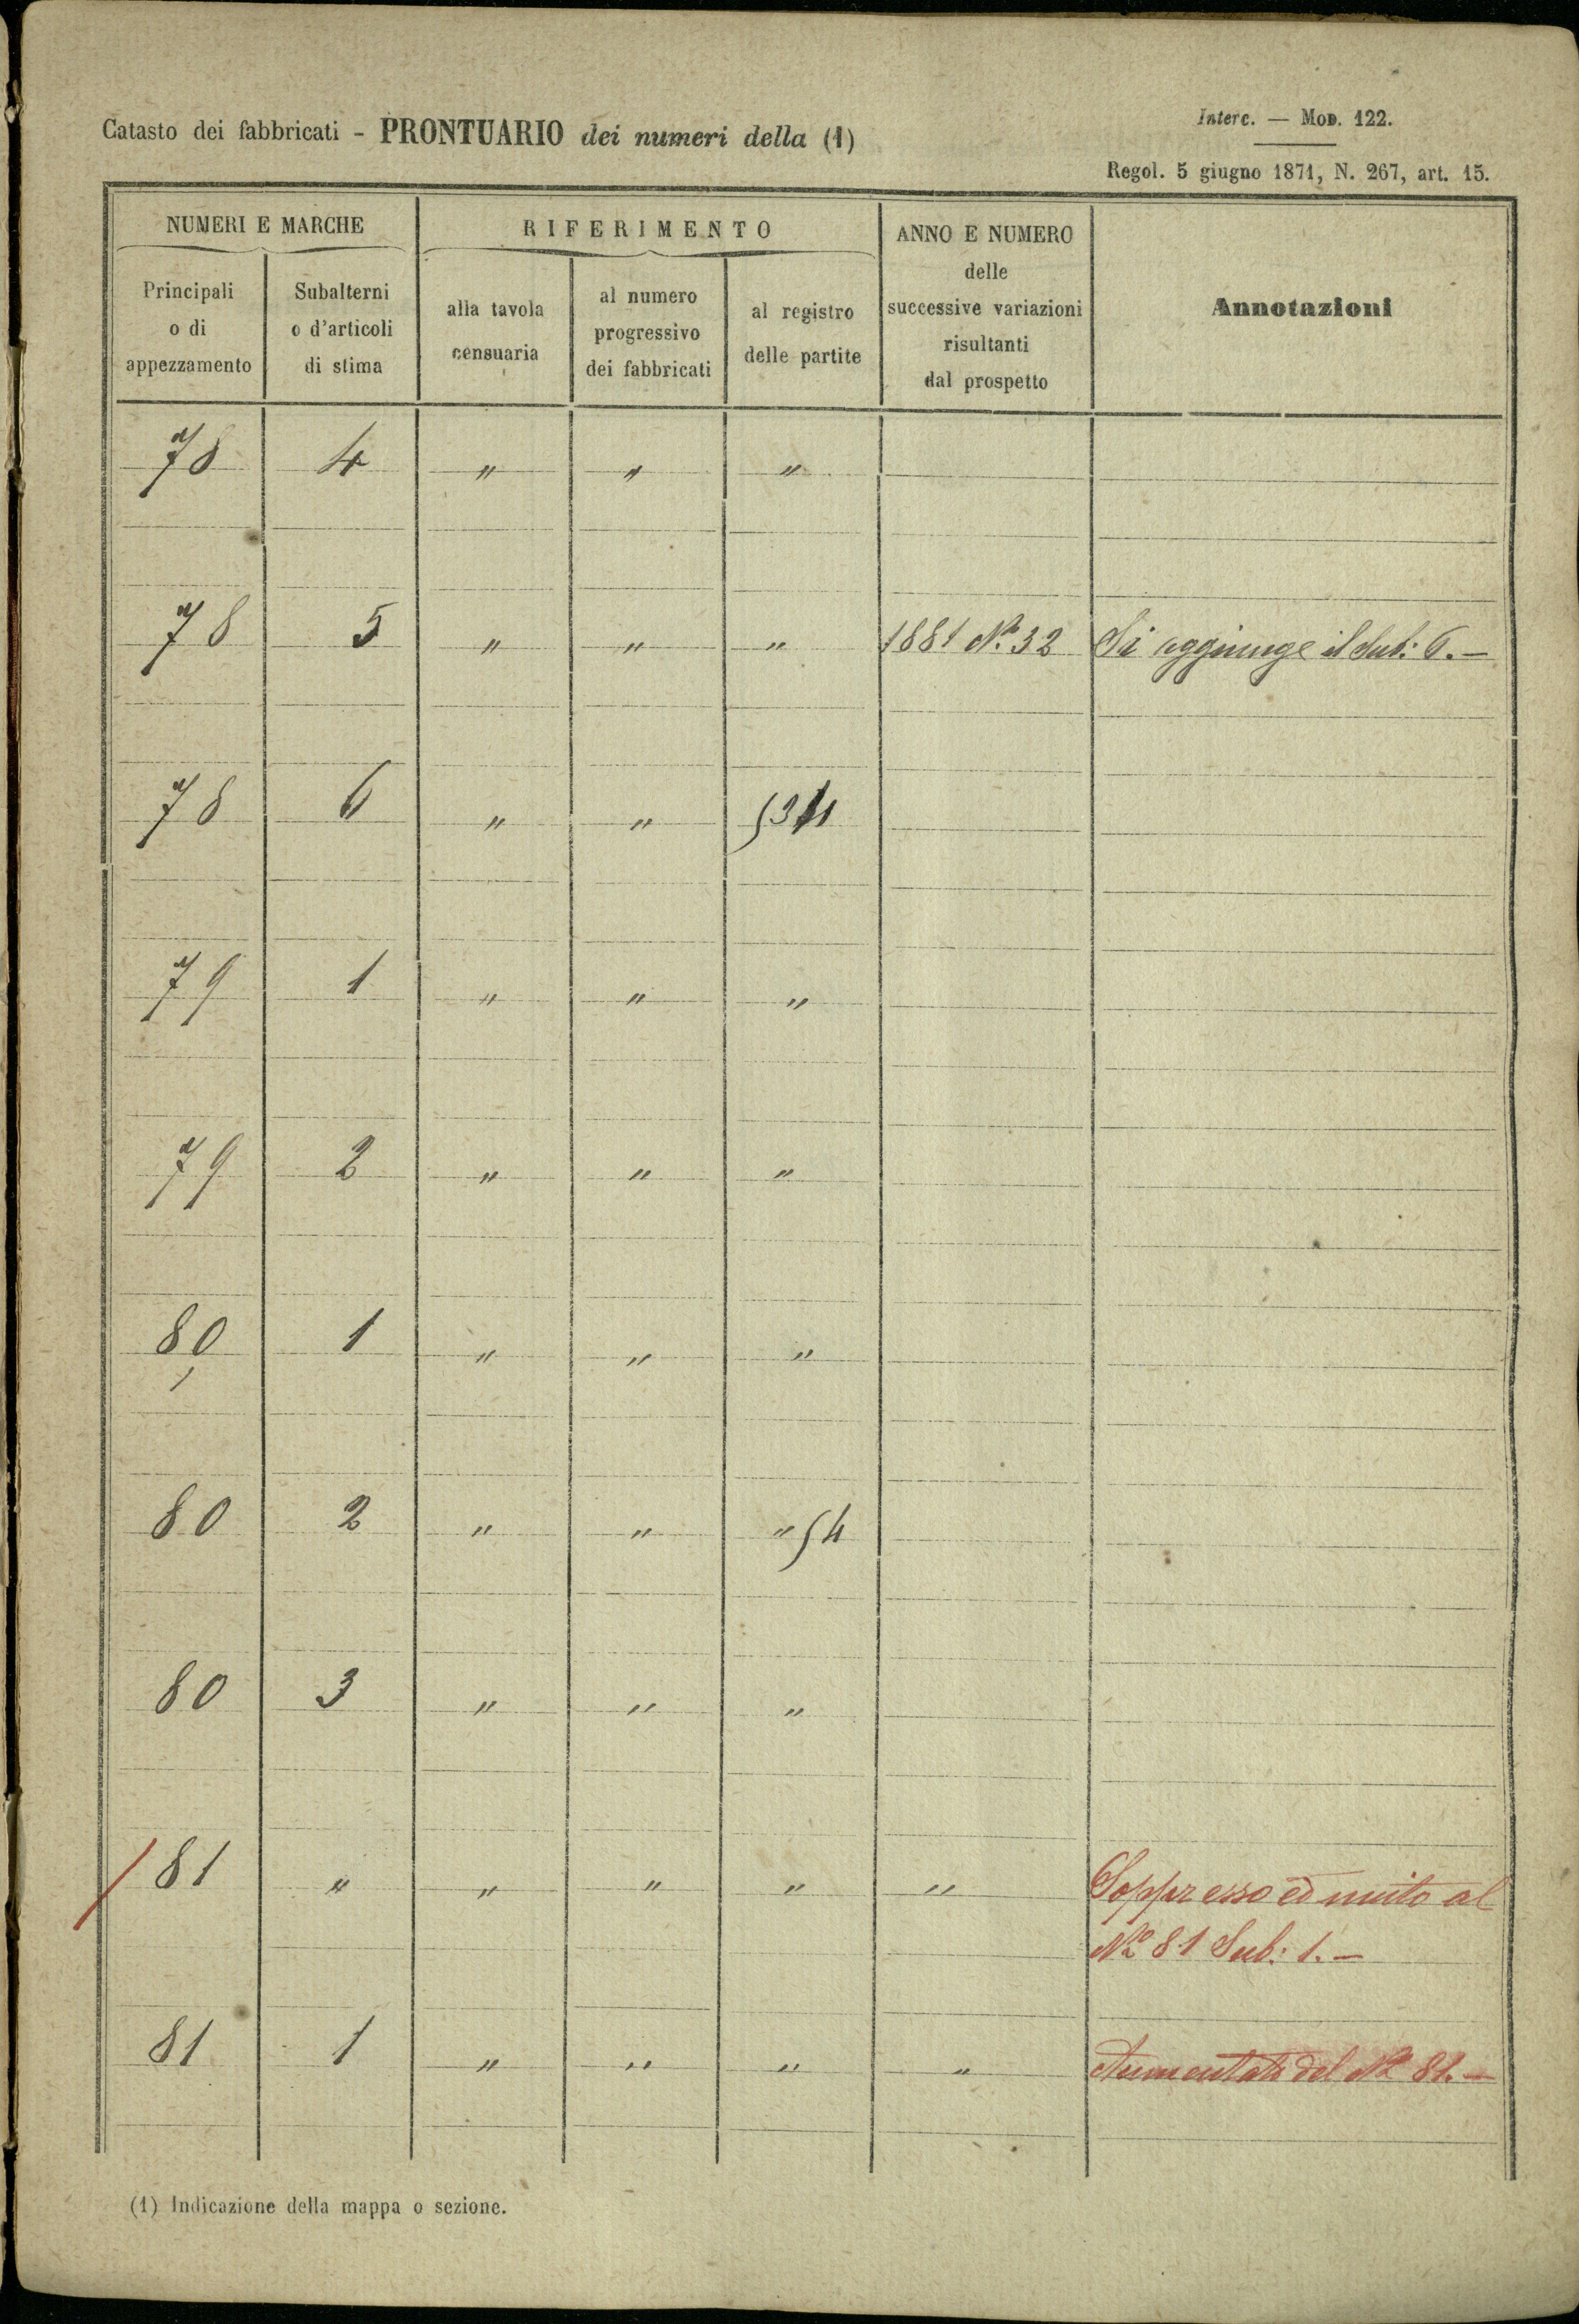 Catasto dei fabbricati - PRONTUARIO dei numeri della (1)
Interc. — Mod. 122.
Regol. 5 giugno 1871, N. 267, art. 15.
NUMERI E MARCHE
RIFERIMENTO
ANNO E NUMERO
delle
successive variazioni
risultanti
dal prospetto
Annotazioni
Principali
o di
appezzamento
Subalterni
o d'articoli
di stima
alla tavola
censuaria
al numero
progressivo
dei fabbricati
al registro
delle partite
78 4 " " "
78 5 " " " 1881 No. 32 Si aggiunge il Sub: 6. —
78 6 " "
79 1 " " "
79 2 " " "
80 1 " " "
80 2 " " " 54
80 3 " " "
81 " " " " " Soppresso ed unito al
No 81 Sub: 1. —
81 1 " " " " Aumentato del No 81. —
(1) Indicazione della mappa o sezione.